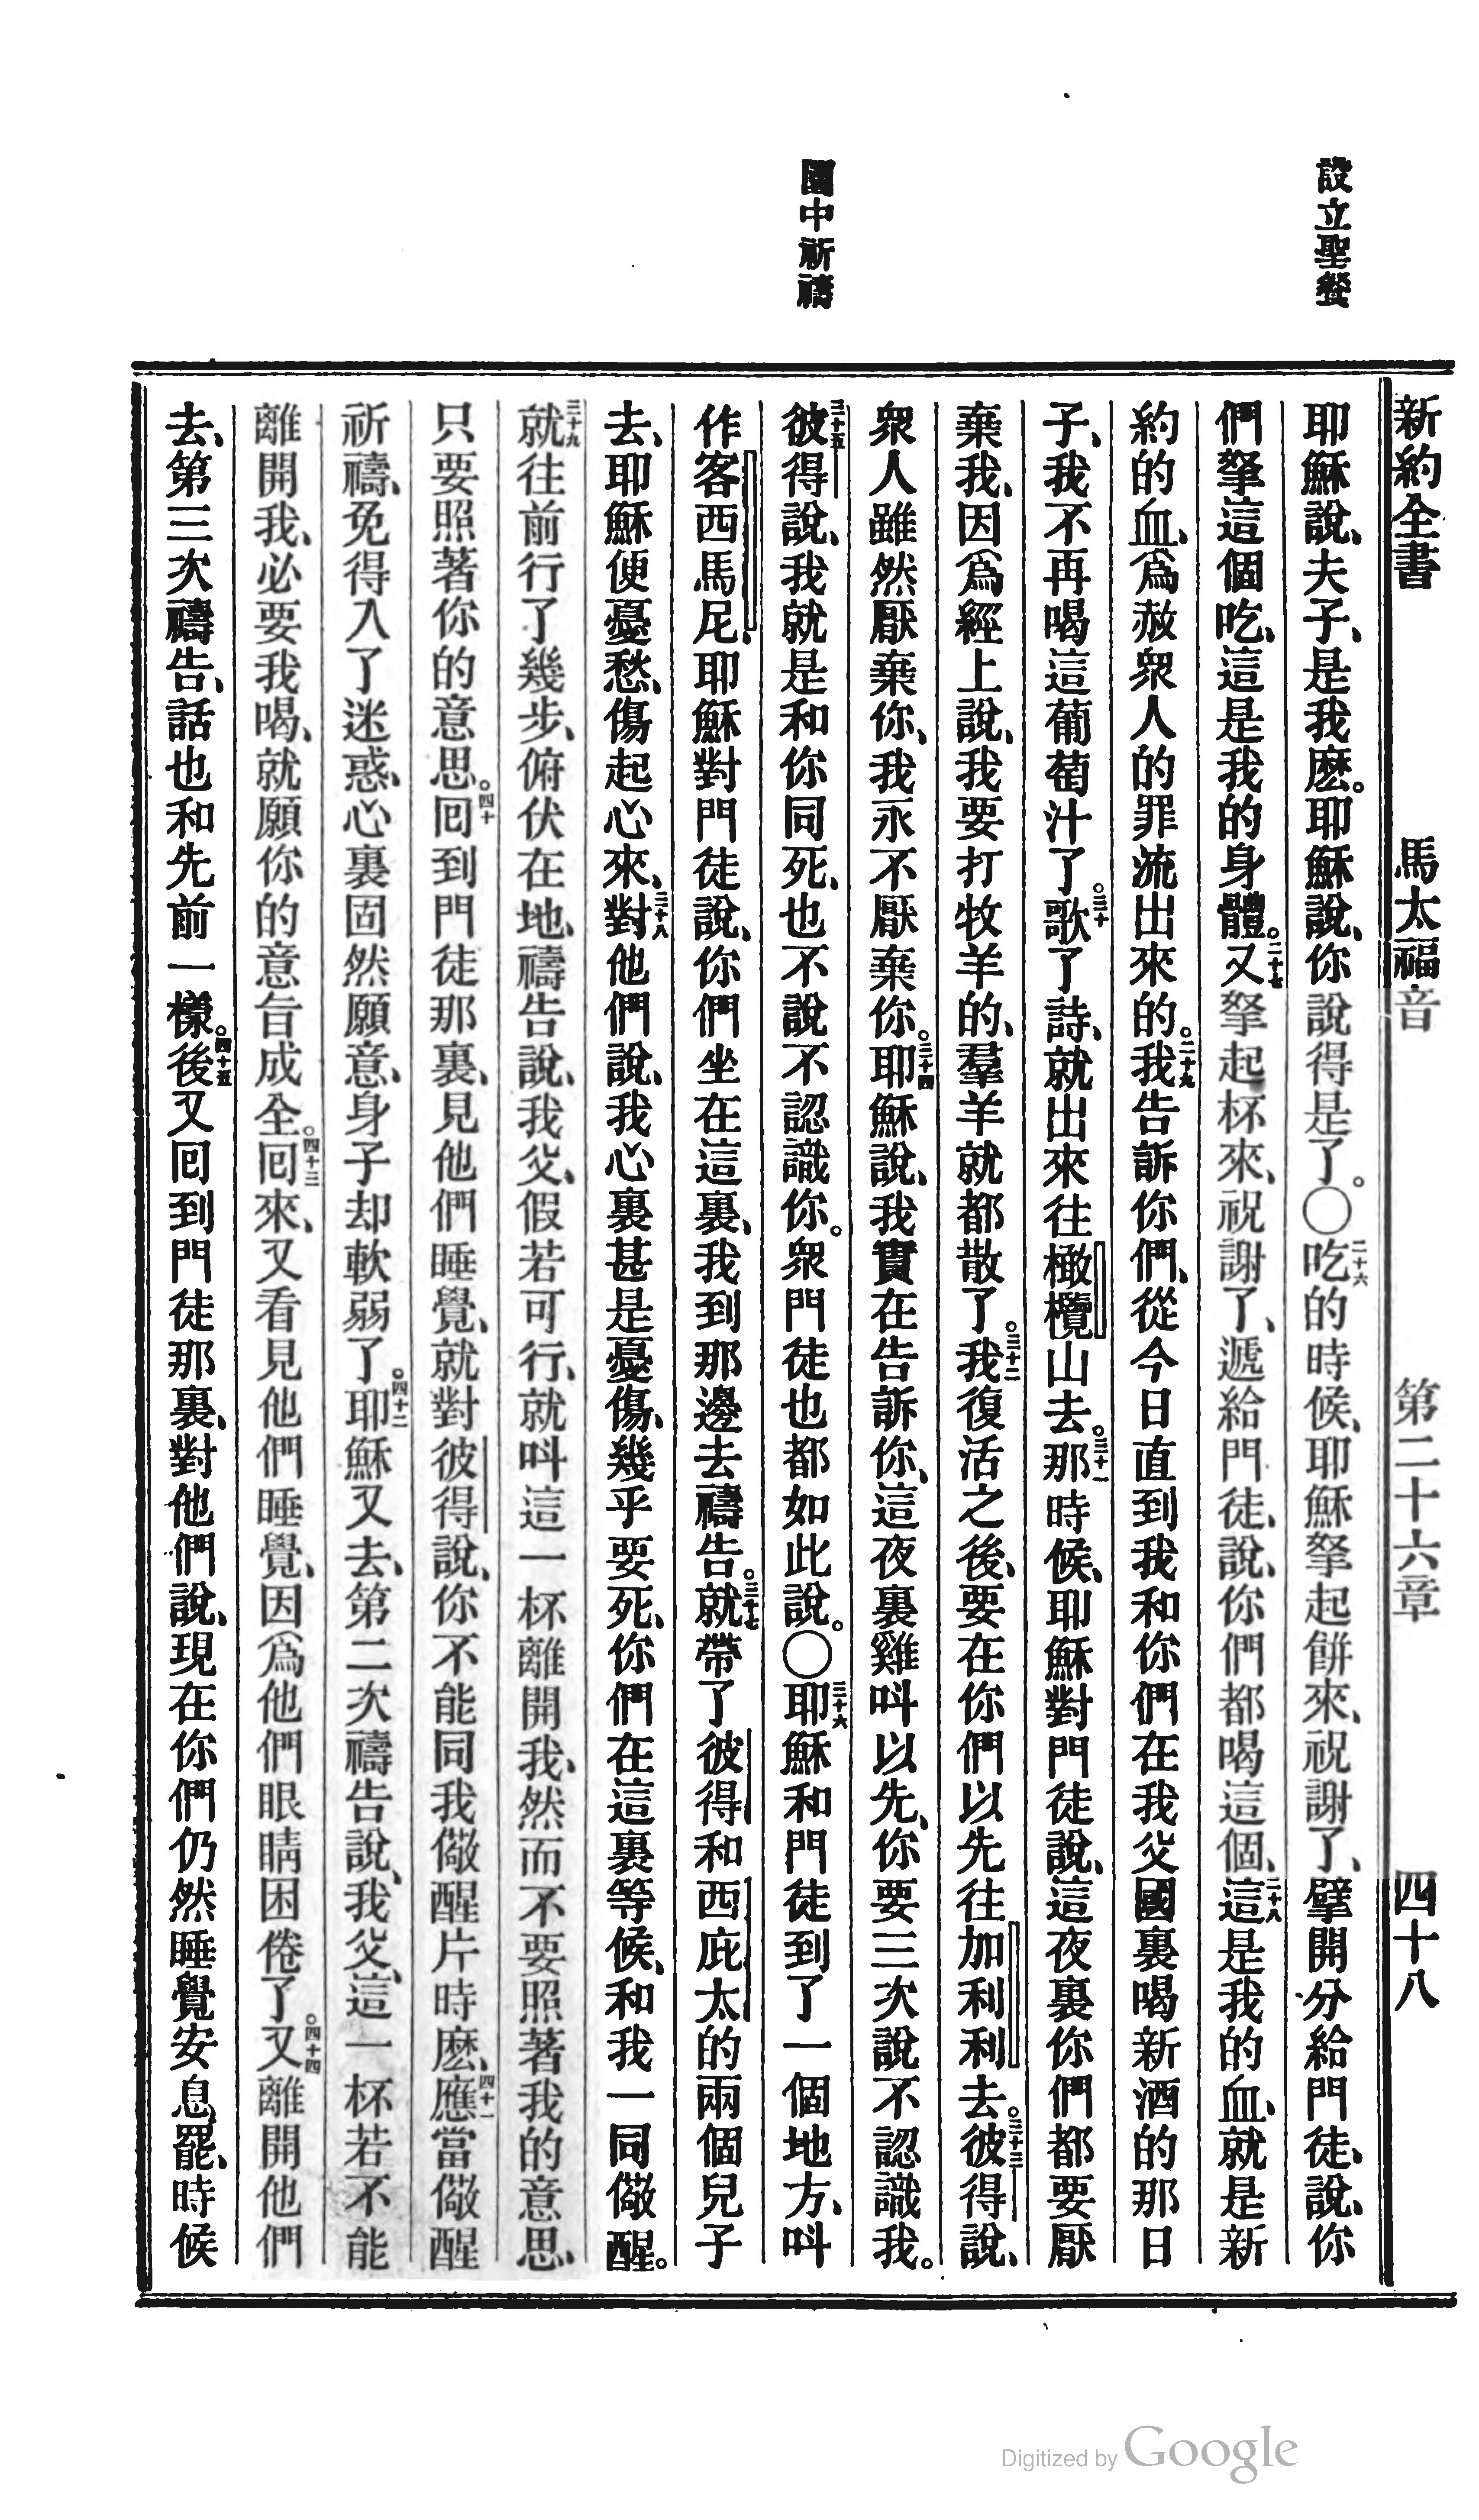 設立聖餐
園中祈禱
新約全書 馬太福音 第二十六章 四十八
耶穌說、夫子、是我麽。耶穌說、你說得是了。〇二十六吃的時候、耶穌拏起餅來、祝謝了、擘開分給門徒、說、你
們拏這個吃、這是我的身體。二十七又拏起杯來、祝謝了、遞給門徒、說、你們都喝這個、二十八這是我的血、就是新
約的血、爲赦衆人的罪流出來的。二十九我告訴你們、從今日直到我和你們在我父國裏喝新酒的那日
子、我不再喝這葡萄汁了。三十歌了詩、就出來往橄欖山去。三十一那時候、耶穌對門徒說、這夜裏你們都要厭
棄我、因爲經上說、我要打牧羊的、羣羊就都散了。三十二我復活之後、要在你們以先往加利利去。三十三彼得說、
衆人雖然厭棄你、我永不厭棄你。三十四耶穌說、我實在告訴你、這夜裏雞呌以先、你要三次說不認識我。
三十五彼得說、我就是和你同死、也不說不認識你。衆門徒也都如此說。〇三十六耶穌和門徒到了一個地方、呌
作客西馬尼、耶穌對門徒說、你們坐在這裏、我到那邊去禱告。三十七就帶了彼得和西庇太的兩個兒子
去、耶穌便憂愁、傷起心來、三十八對他們說、我心裏甚是憂傷、幾乎要死、你們在這裏等候、和我一同儆醒。
三十九就往前行了幾步、俯伏在地、禱告說、我父、假若可行、就呌這一杯離開我、然而不要照著我的意思、
只要照著你的意思。四十囘到門徒那裏、見他們睡覺、就對彼得說、你不能同我儆醒片時麽、四十一應當儆醒
祈禱、免得入了迷惑、心裏固然願意、身子却軟弱了。四十二耶穌又去、第二次禱告說、我父、這一杯若不能
離開我、必要我喝、就願你的意旨成全。四十三囘來、又看見他們睡覺、因爲他們眼睛困倦了。四十四又離開他們
去、第三次禱告、話也和先前一樣。四十五後又囘到門徒那裏、對他們說、現在你們仍然睡覺安息罷、時候
Digitized by Google